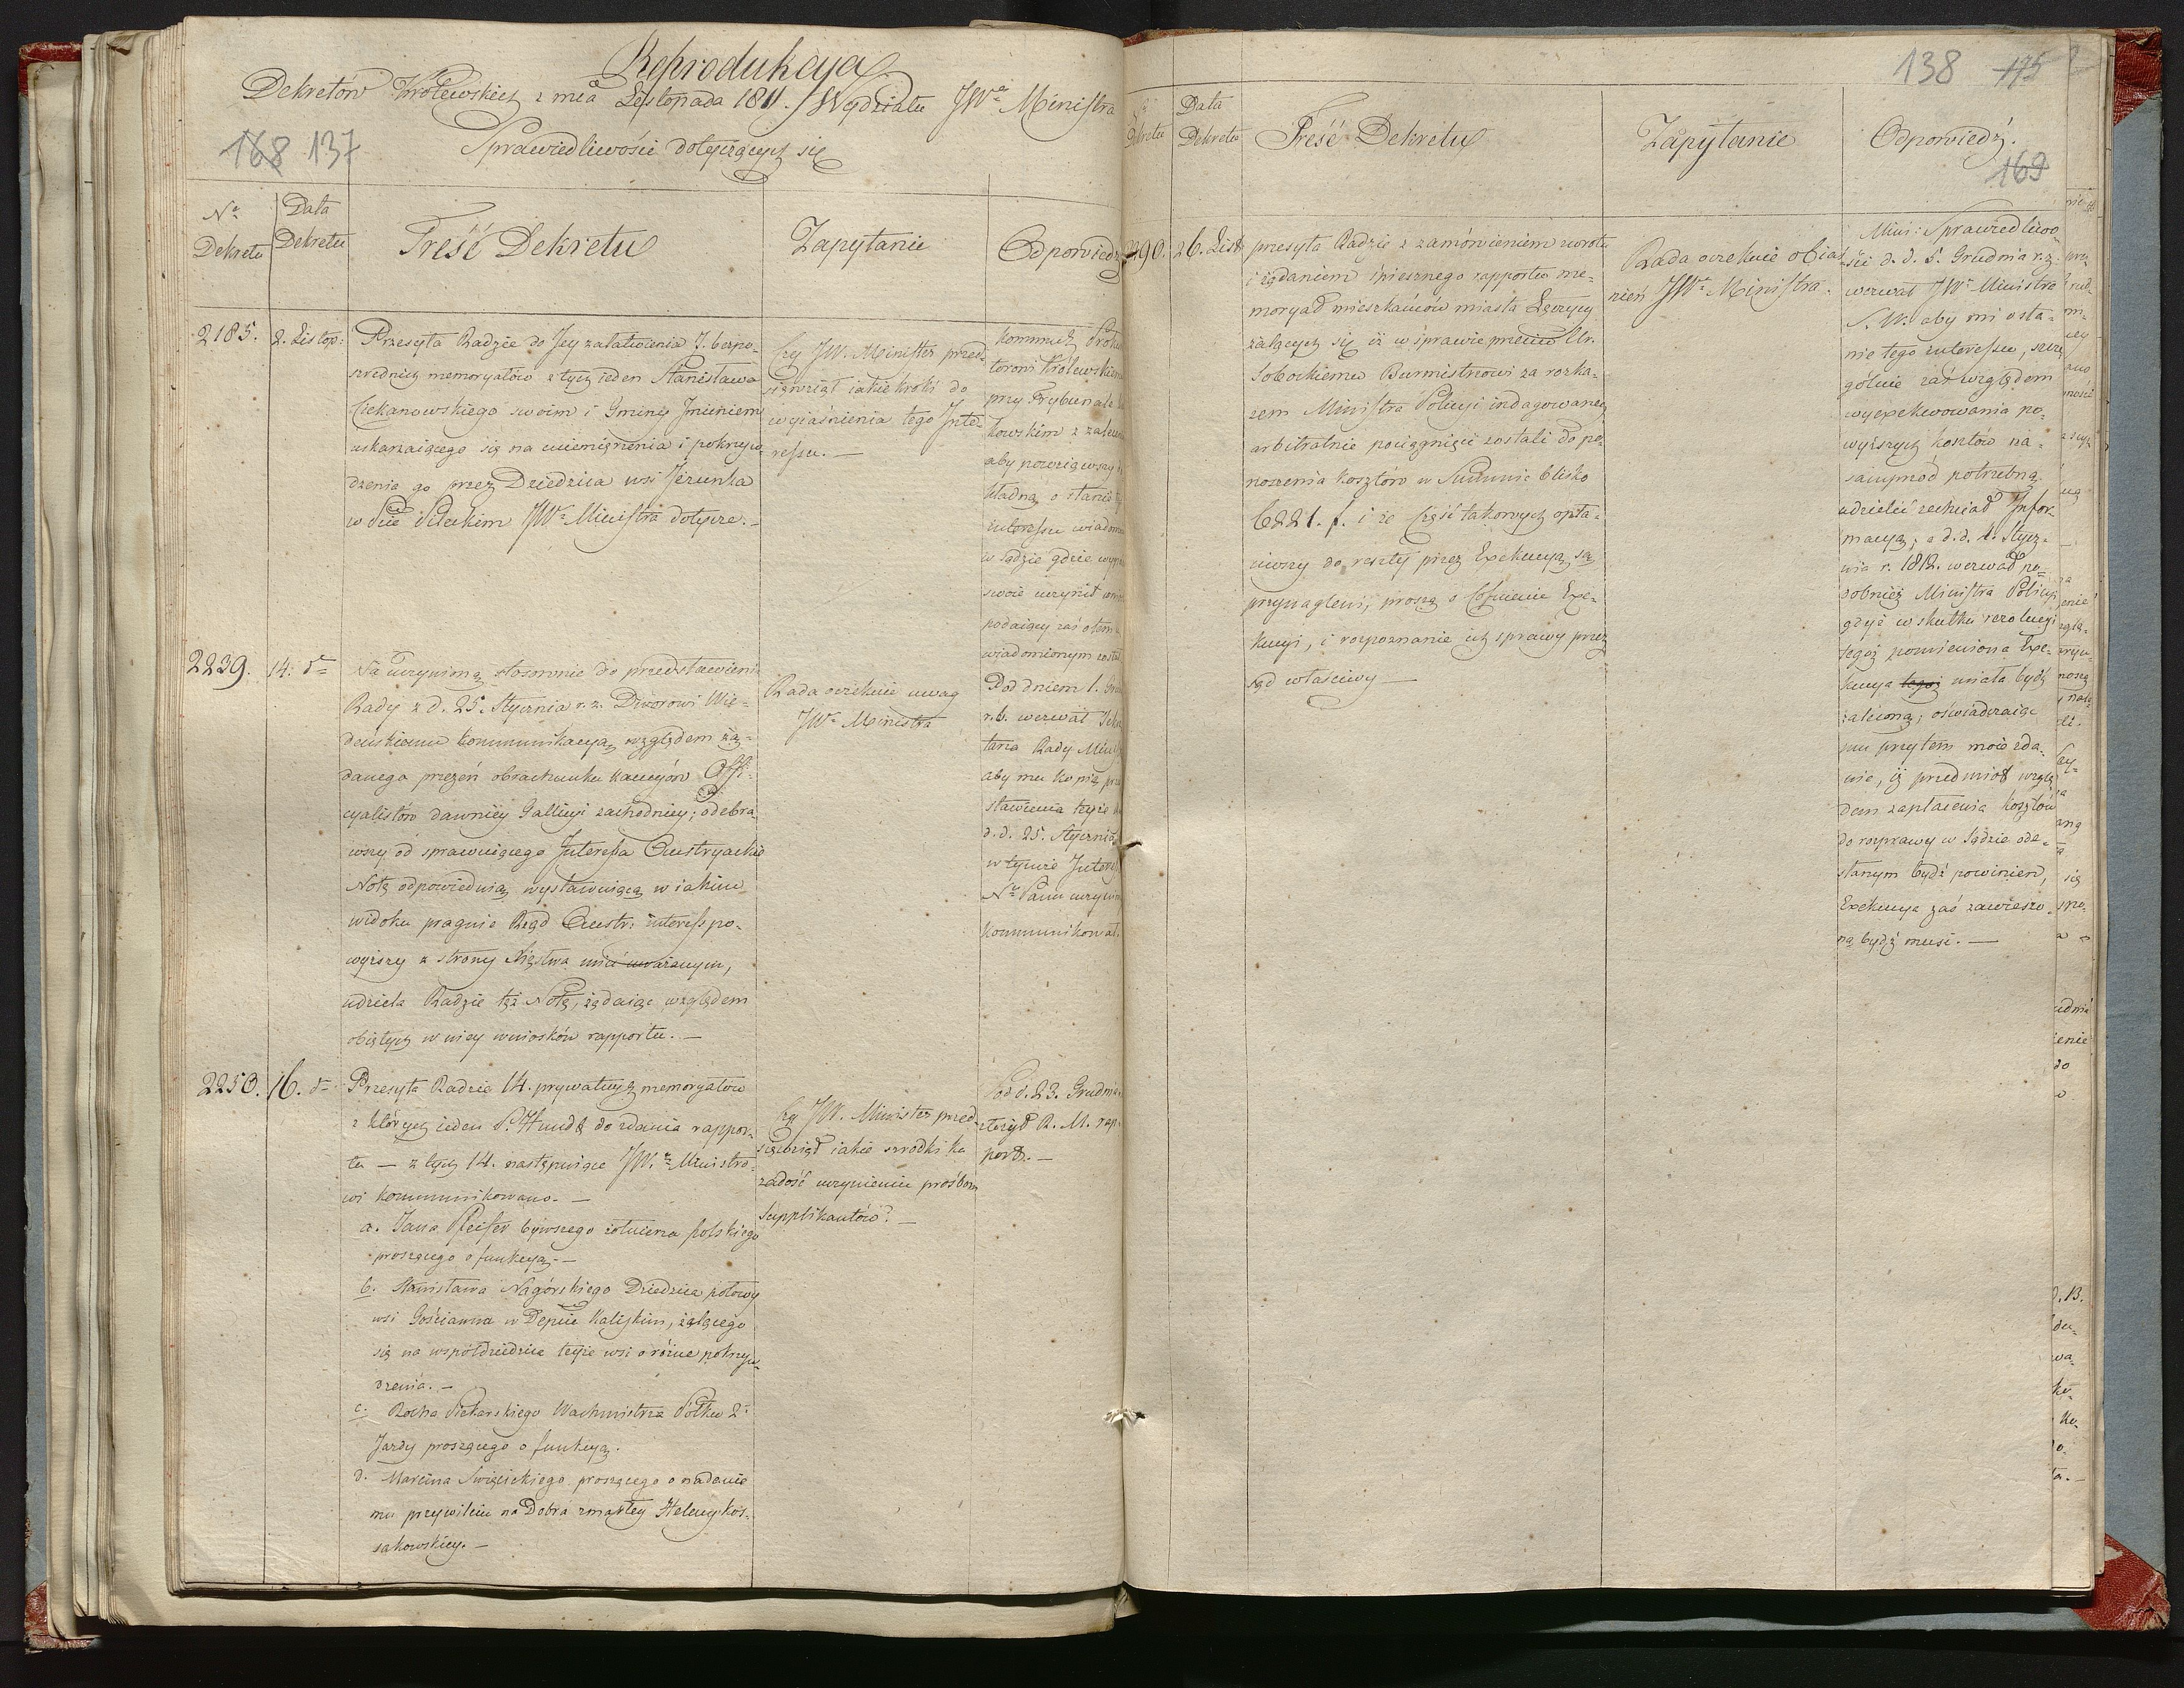 Reprodukcya
Dekretów Królewskich z mca Listopada 1811. Wydziału JWo Ministra
Sprawiedliwości dotyczących się
168 137
No Dekretu
Data Dekretu
Treść Dekretu
Zapytanie
Odpowiedź
2185.
2. Listop:
Przesyła Radzie do Jey załatwienia 7. bezpo-
srednich memoryałów z tych ieden Stanisława
Ciekanowskiego swoim i Gminy Jmieniem
uskarzaiącego się na uciemiężenia i pokrzyw-
dzenia go przez Dziedzica wsi Jezunka
w Pcie JWo Ministra dotycze. -
Czy JW. Minister przed-
sięwziął iakie kroki do
wyiaśnienia tego Inte-
ressu. -
kommuch
toronii Królewskiem
przy Trybunale
kowskim z
aby powziąwszy
kładną o stanie
interessu
w Sądzie gdzie
swoie uczynił
podaiący zaś o tem
wiadomionym został
2239.
14. do
Na uczynioną stosownie do przedstawienia
Rady z d. 25. Stycznia r. z. Dworowi Wie-
deńskiemu kommunikacyą względem żą-
danego przezeń obrachunku kaucyów Offi-
cyalistów dawniey Gallicyi zachodniey; odebra-
wszy od sprawuiącego Interessa Austryackie
Notę odpowiednią wystawuiącą w iakim
widoku pragnie Rząd Austr: interess po-
wyższy z strony Xięstwa mieć uważanym,
udziela Radzie też Notę, żądaiąc względem
obiętych w niey wniosków rapportu. -
Rada oczekuie uwag
JWo Ministra
Pod dniem 1.
r. b. wezwał
tarza Rady
aby mu kopią
stawienia teyże
d. d. 25. Stycznia
w tymże
No Panu
kommunikował.
2250.
16. do
Przesyła Radzie 14. prywatnych memoryałów
z których ieden P. Hundt do zdania rappor-
tu - z tych 14. następuiące JW. Ministro-
wi kommunikowano. -
a. Jana Pleifer bywszego żołnierza polskiego
proszącego o funkcyą. -
b. Stanisława Nagórskiego Dziedzica połowy
wsi Gościawna w Depcie Kaliskim, żalącego
się na współdziedzica teyże wsi o różne pokrzyw-
dzenia. -
c. Rocha Piekarskiego Wachmistrza Półku 2o
Jazdy proszącego o funkcyą.
d. Marcina Swięcickiego proszącego o nadanie
mu przywileiu na Dobra zmarłey Heleny Kos-
sakowskiey. -
Czy JW. Minister przed-
sięwziął iakie srodki ku
zadość uczynieniu prośbom
Supplikantów? -
Pod d. 23. Grudnia
złożył R. M. rap-
port. -
138 175
Dekretu
Data Dekretu
Treść Dekretu
Zapytanie
Odpowiedź.
169
2290.
26. List:
przesyła Radzie z zamówieniem zwrotu
i żądaniem śpiesznego rapportu me-
moryał mieszkańców miasta Łęczycy
żalących się iż w sprawie przeciw Ur.
Sobockiemu Burmistrzowi za rozka-
zem Ministra Policyi indagowaney
arbitralnie pociągnięci zostali do po-
noszenia kosztów w Summie blisko
6221. f. i że część takowych opła-
ciwszy do reszty przez Exekucyą są
przynagleni, proszą o cofnienie Exe-
kucyi, i rozpoznanie ich sprawy przez
sąd właściwy. -
Rada oczekuie obiaś-
nień JWo Ministra.
Mini: Sprawiedliwo-
ści d. d. 5. Grudnia r. z.
wezwał JWo Ministra
S. W. aby mi o sta-
nie tego interessu, szcze-
gólnie zaś względem
wyexekwowania po-
wyższych kosztów na-
samprzód potrzebną
udzielić zechciał Infor-
macyą; a d. d. 1. Stycz-
nia r. 1812. wezwał po-
dobnież Ministra Policyi
gdyż w skutku rezolucyi
tegoż pomieniona Exe-
kucya tegoż miała bydź
zaleconą; oświadczaiąc
mu przytem moie zda-
nie, iż przedmiot wzglę-
dem zapłacenia kosztów
do rozprawy w Sądzie ode-
słanym bydź powinien,
Exekucya zaś zawieszo-
ną bydź musi. -